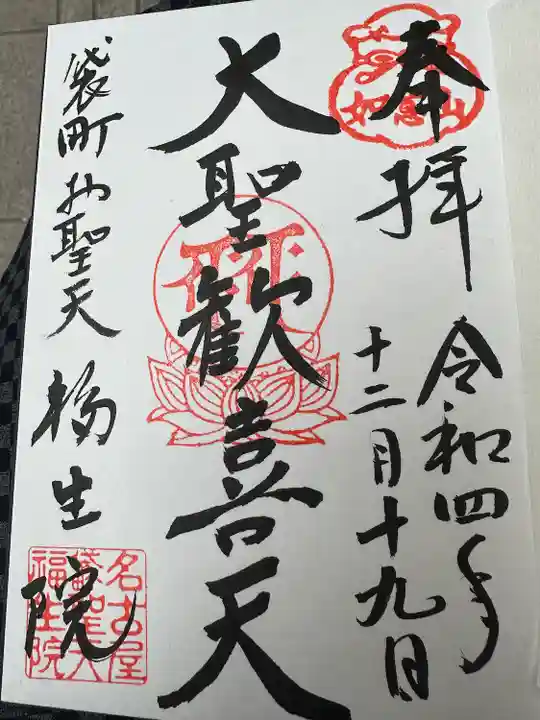 奉拝
令和四年
十二月十九日
大聖歓喜天
袋町お聖天
福生院
如意山
名古屋
袋聖天
福生院